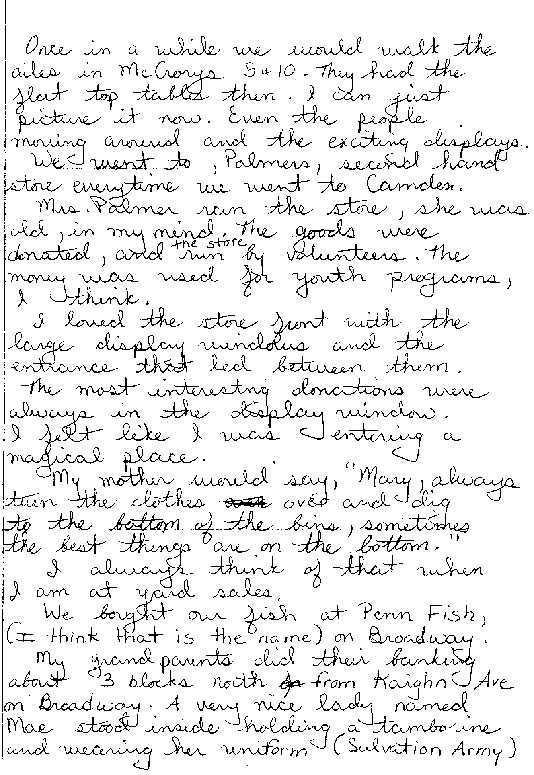 Once in a while we would walk the
ailes in McCrorys 5 & 10. They had the
flat top tables then. I can just
picture it now. Even the people
moving around and the exciting displays.
We went to, Palmers, second hand
store everytime we went to Camden.
Mrs. Palmer ran the store, she was
old, in my mind. The goods were
donated, and the store run by volunteers. The
money was used for youth programs,
I think.
I loved the store front with the
large display windows and the
entrance that led between them.
The most interesting donations were
always in the display window.
I felt like I was entering a
magical place.
My mother would say, "Mary, always
turn the clothes over and dig
to the bottom of the bins, sometimes
the best things are on the bottom."
I always think of that when
I am at yard sales.
We bought our fish at Penn Fish,
(I think that is the name) on Broadway.
My grandparents did their banking
about 3 blocks north from Kaighn Ave
on Broadway. A very nice lady named
Mae stood inside holding a tamborine
and wearing her uniform (Salvation Army)